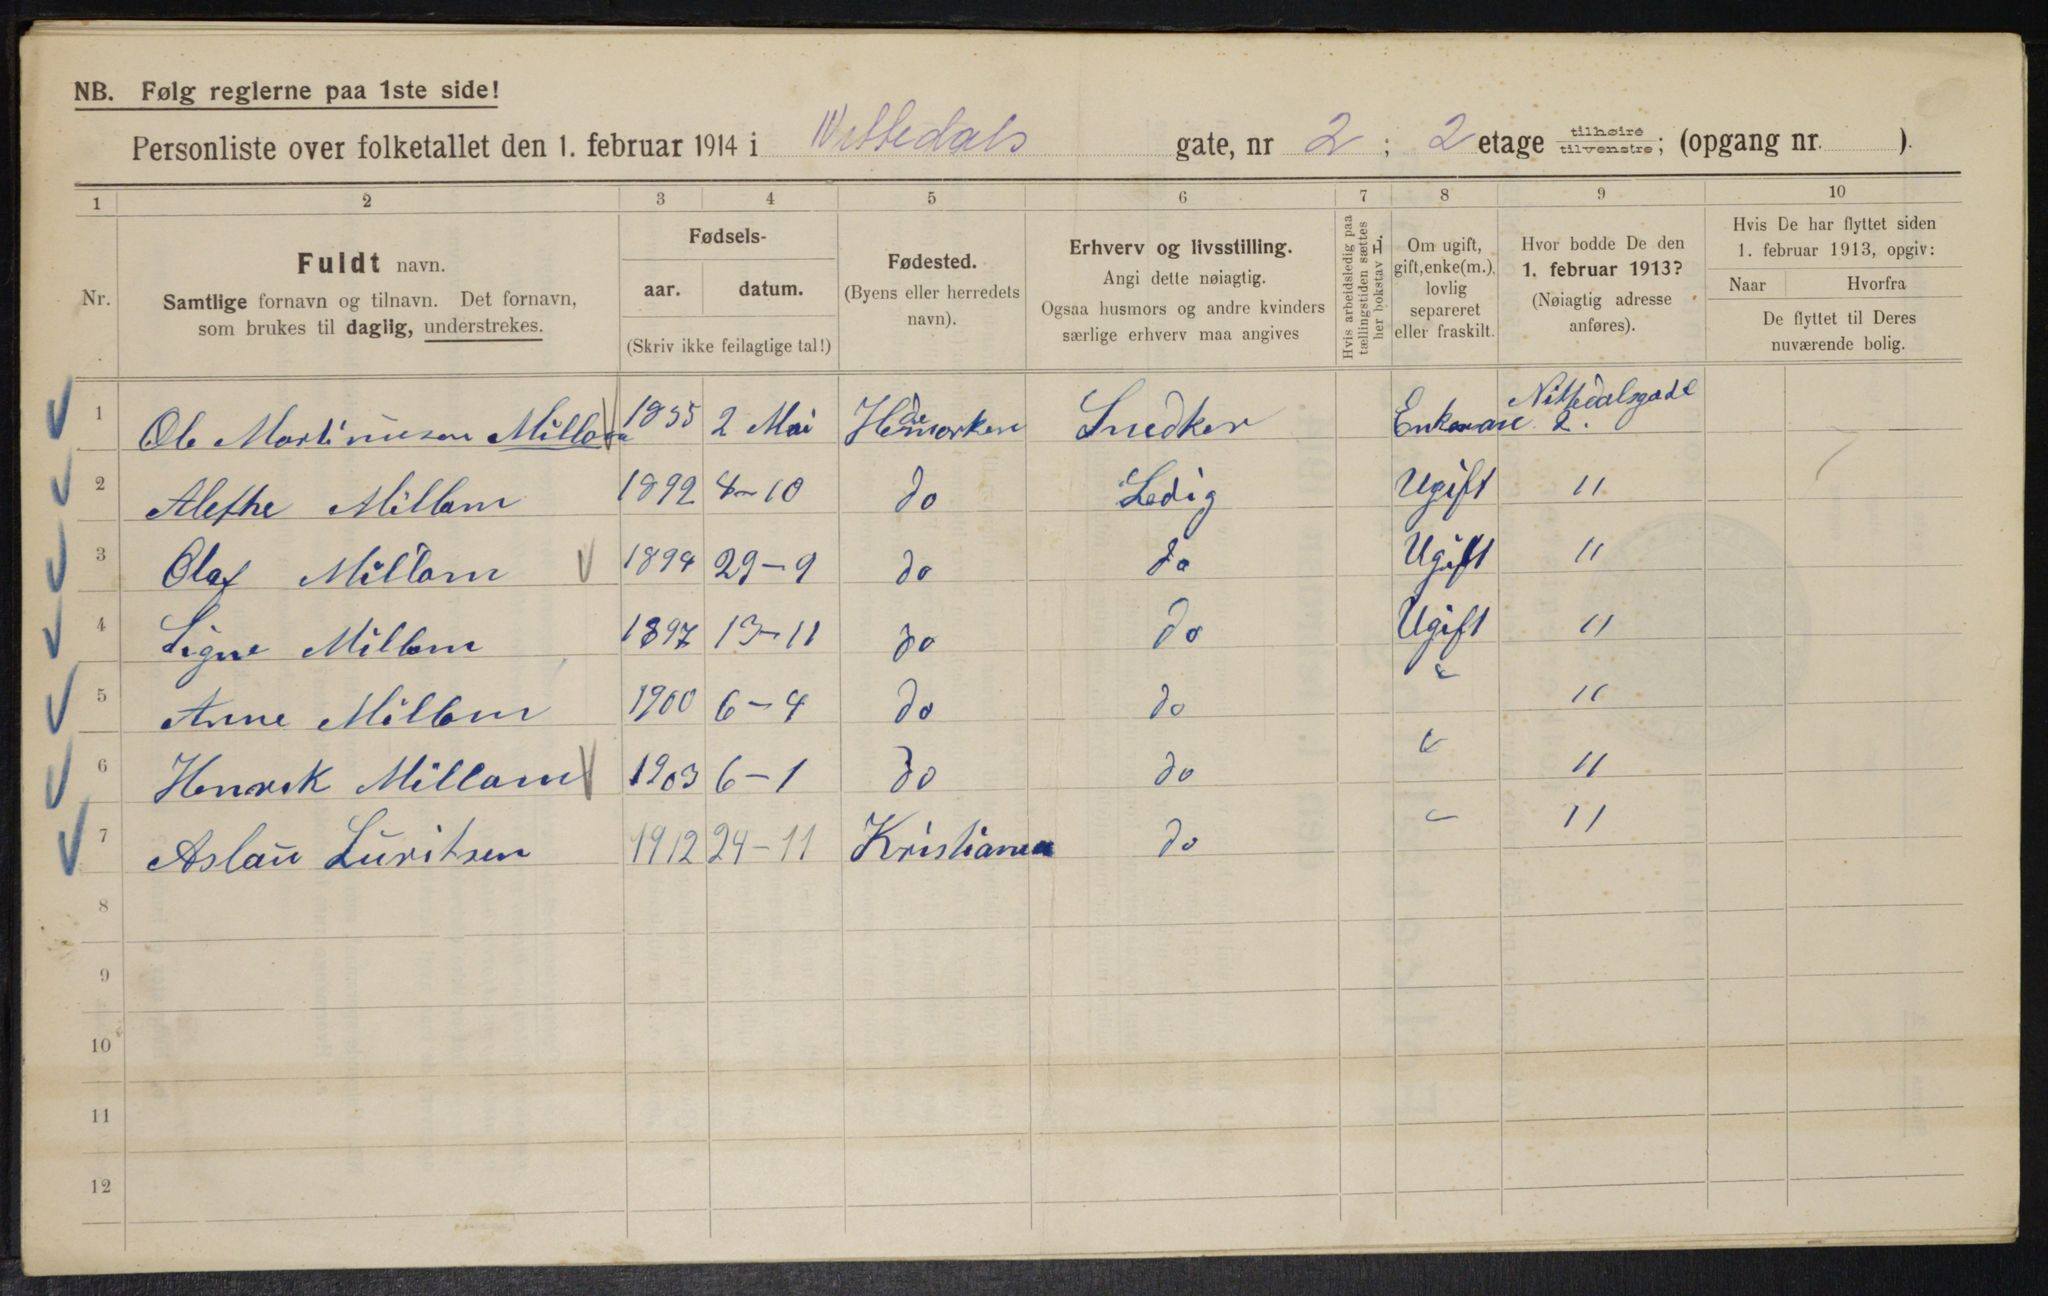 NB. Følg reglerne paa 1ste side!
Personliste over folketallet den 1. februar 1914 i Nittedals gate, nr 2 ; 2 etage tilhøire / tilvenstre ; (opgang nr. ).
1 2 3 4 5 6 7 8 9 10
Nr.
Fuldt navn.
Samtlige fornavn og tilnavn. Det fornavn,
som brukes til daglig, understrekes.
Fødsels-
aar. datum.
(Skriv ikke feilagtige tal!)
Fødested.
(Byens eller herredets
navn).
Erhverv og livsstilling.
Angi dette nøiagtig.
Ogsaa husmors og andre kvinders
særlige erhverv maa angives
Hvis arbeidsledig paa
tællingstiden sættes
her bokstav H.
Om ugift,
gift, enke(m.),
lovlig
separeret
eller fraskilt.
Hvor bodde De den
1. februar 1913?
(Nøiagtig adresse
anføres).
Hvis De har flyttet siden
1. februar 1913, opgiv:
Naar Hvorfra
De flyttet til Deres
nuværende bolig.
1 Ole Martinusen Millom 1855 2 Mai Hedemarken Snedker Enkeman Nittedalsgade 2.
2 Alethe Millom 1892 4-10 do Ledig Ugift "
3 Olaf Millom 1894 29-9 do do Ugift "
4 Signe Millom 1897 13-11 do do Ugift "
5 Anne Millom 1900 6-4 do do " "
6 Henrik Millom 1903 6-1 do do " "
7 Aslau Luritsen 1912 24-11 Kristiania do " "
8
9
10
11
12